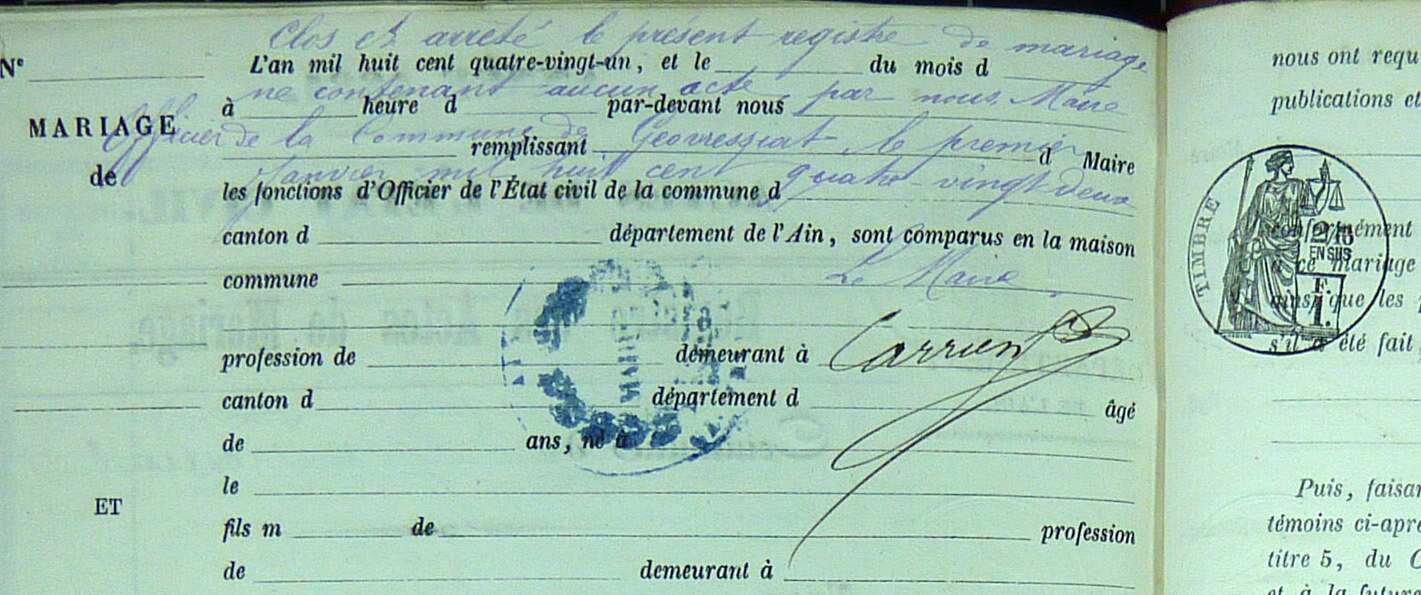 Clos et arrêté le présent registre de mariage
Nº
L'an mil huit cent quatre-vingt-un, et le du mois d
ne contenant aucun acte, par nous Maire
à heure d par-devant nous
MARIAGE
Officier de la Commune de Géovressiat le premier
remplissant d Maire
de
Janvier mil huit cent quatre-vingt deux
les fonctions d'Officier de l'État civil de la commune d
canton d département de l'Ain, sont comparus en la maison
Le Maire
commune
profession de demeurant à
canton d département d âgé
de ans, né à
le
ET
fils m de profession
de demeurant à
nous ont requ
publications et
TIMBRE
conformément
2/10
EN SUS
ce mariage
F.
1.
ainsi que les
s'il a été fait
Puis, faisan
témoins ci-apr
titre 5, du C
et à la future